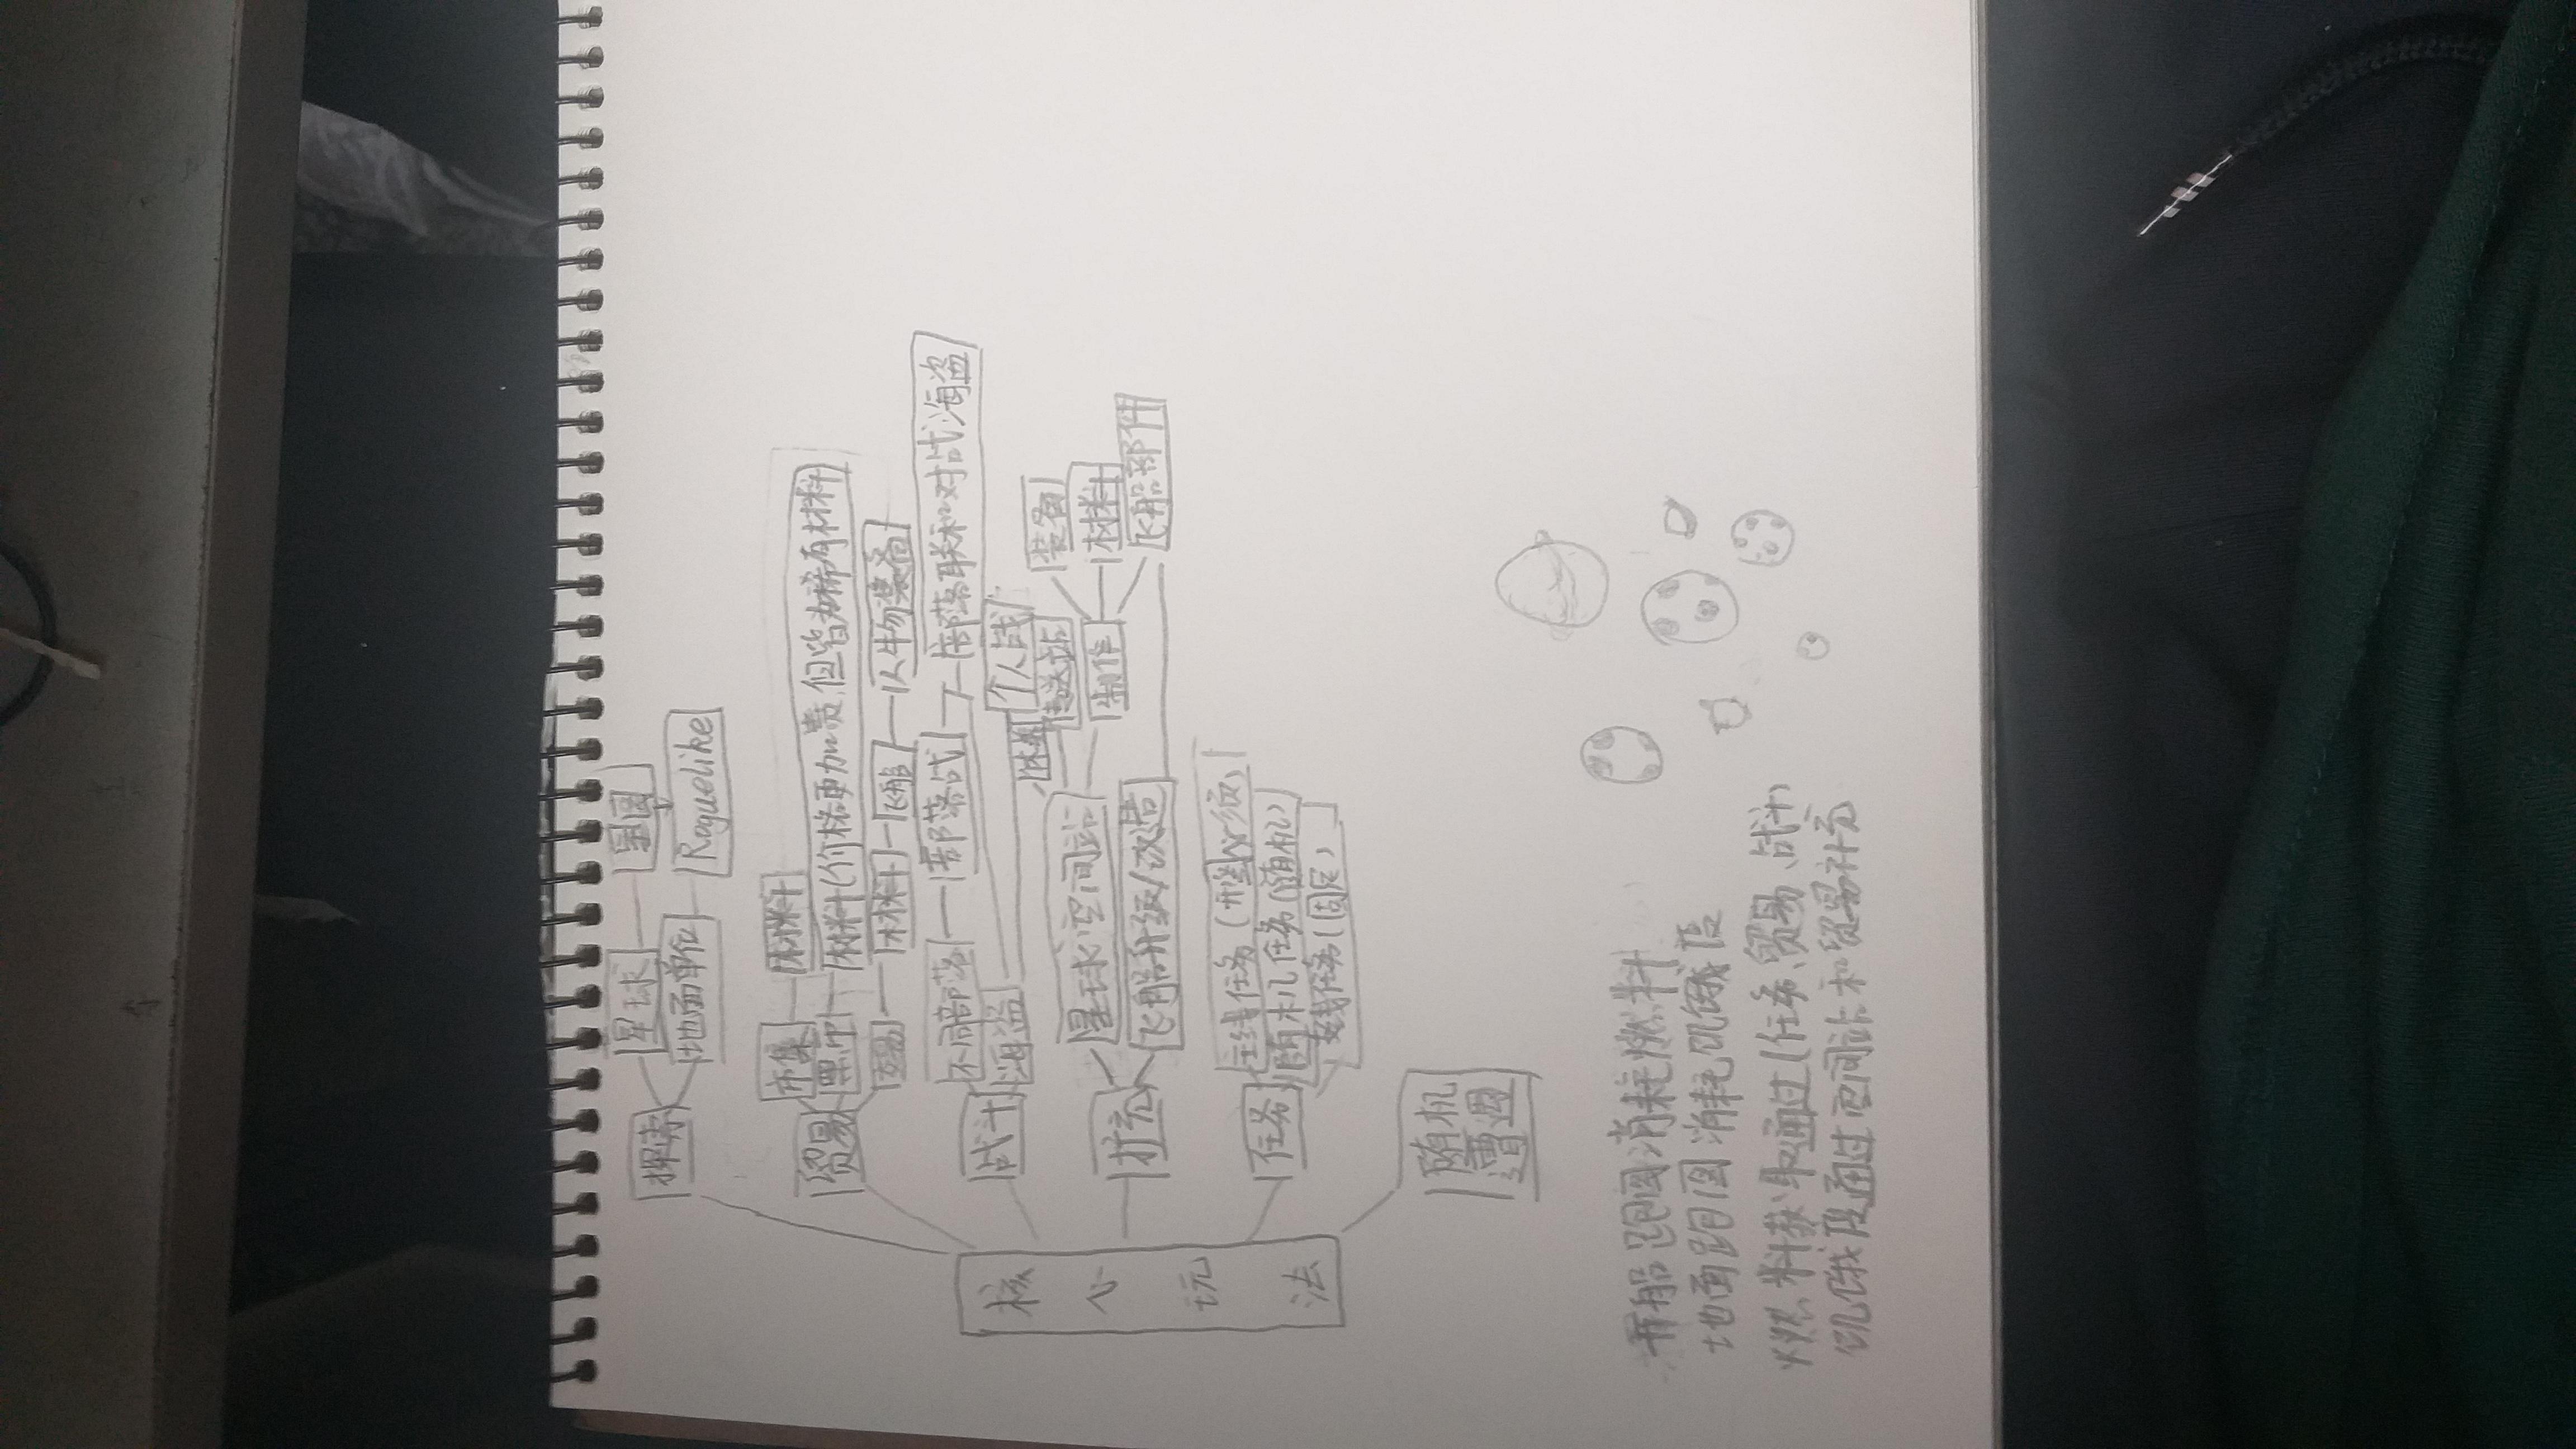 核心玩法
探索
星球
星图
地面单位
Roguelike
贸易
市集
材料
黑市
材料(价格更加贵,但皆为稀有材料
交易
材料
飞船
人物装备
战斗
不同部落
部落战
部落联和对战海盗
海盗
个人战
扩充
星球空间站
休整
传送站
制作
装备
材料
飞船部件
飞船升级/改造
任务
主线任务
随机任务(随机)
支线任务(固定)
随机
遭遇
开船跑图消耗燃料
地面跑图消耗饥饿度
燃料获取通过(任务、贸易、战斗)
饥饿度通过空间站和贸易补充